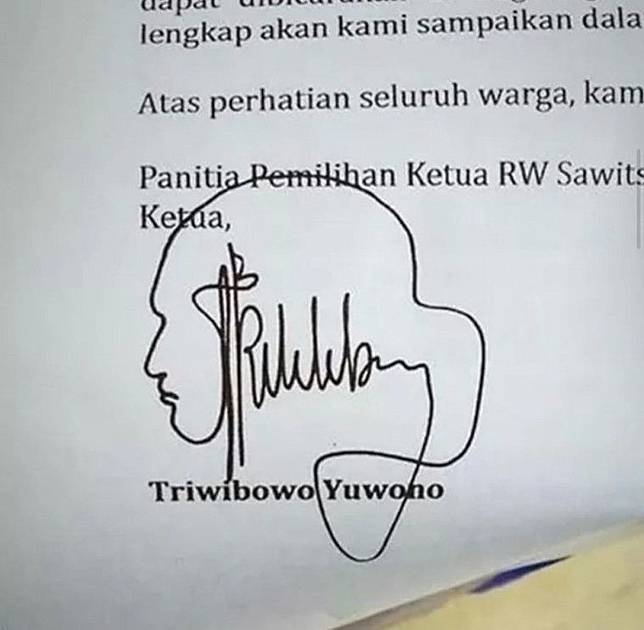 lengkap akan kami sampaikan dala
Atas perhatian seluruh warga, kam
Panitia Pemilihan Ketua RW Sawits
Ketua,
Triwibowo Yuwono